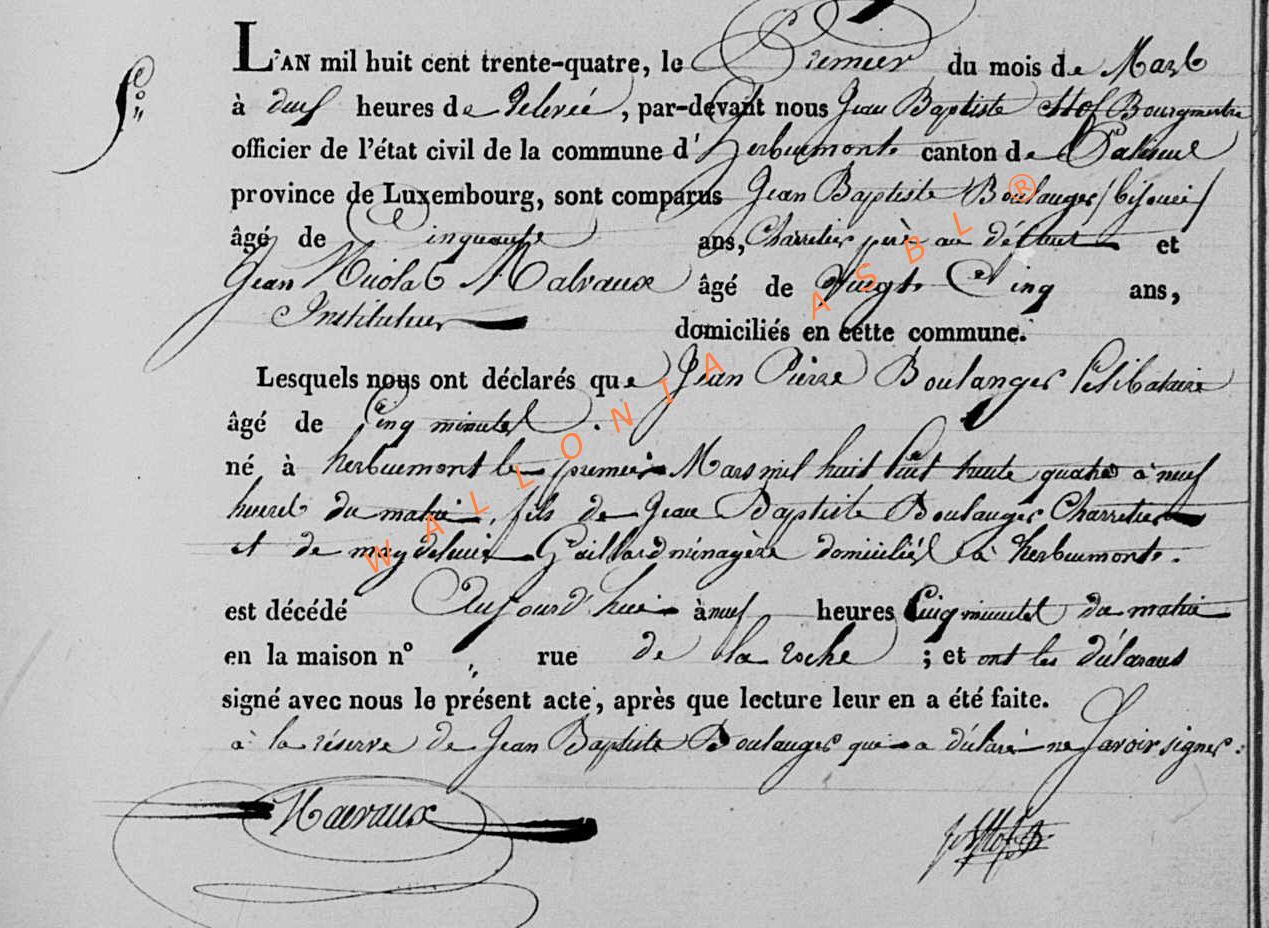 L'AN mil huit cent trente-quatre, le Premier du mois de Mars
à deux heures de Relevée, par-devant nous Jean Baptiste Stof Bourgmestre
officier de l'état civil de la commune d'herbeumont canton de Paliseul
province de Luxembourg, sont comparus Jean Baptiste Boulanger
âgé de Cinquante ans, Charretier père au défunt et
Jean Nicolas Malvaux âgé de Vingt Cinq ans,
Instituteur domiciliés en cette commune.
Lesquels nous ont déclarés que Jean Pierre Boulanger Celibataire
âgé de Cinq minutes.
né à herbeumont le premier Mars mil huit Cent trente quatre à neuf
heures du matin, fils de Jean Baptiste Boulanger Charretier
et de magdeleine Gaillard ménagère domiciliés à herbeumont.
est décédé Aujourd'hui à neuf heures Cinq minutes du matin
en la maison n° „ rue de la roche ; et ont les déclarans
signé avec nous le présent acte, après que lecture leur en a été faite.
à la réserve de Jean Baptiste Boulanger qui a déclaré ne Savoir signer.
Malvaux
WALLONIA ASBL ®